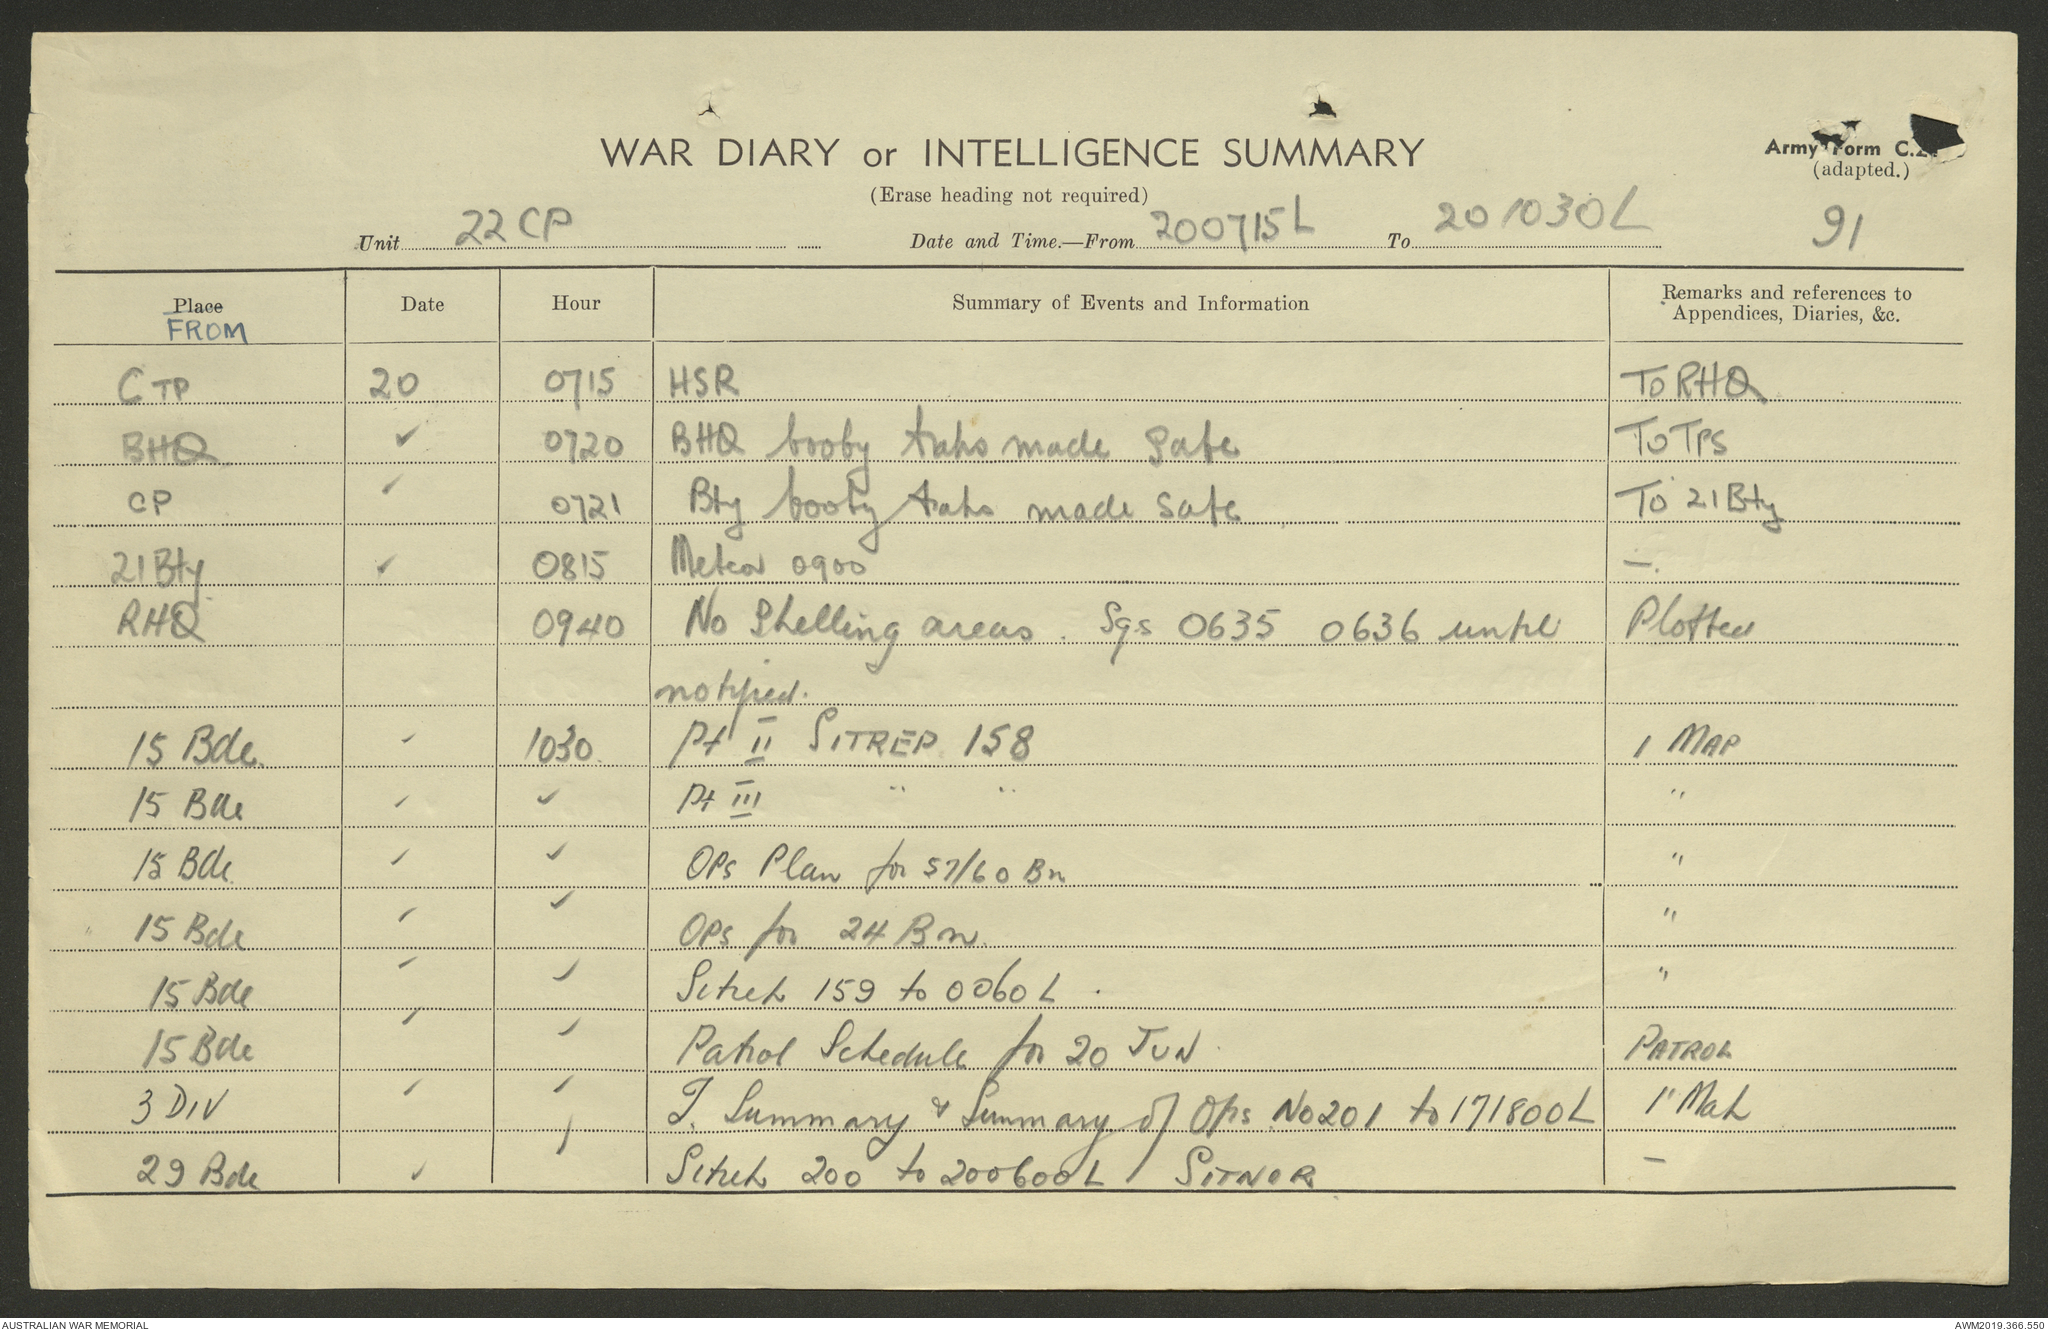 WAR DIARY or INTELLIGENCE SUMMARY
Army Form C.2
(adapted.)
(Erase heading not required)
Unit 22 CP Date and Time.—From 200715L To 201030L 91
Place Date Hour Summary of Events and Information Remarks and references to
FROM Appendices, Diaries, &c.
C TP 20 0715 HSR To RHQ
BHQ ✓ 0720 BHQ booby traps made safe To TPS
CP ✓ 0721 Bty booby traps made safe To 21 Bty
21 Bty ✓ 0815 Meteor 0900 —.
RHQ 0940 No Shelling areas. Sqs 0635 0636 until Plotted
notified.
15 Bde ✓ 1030 Pt II SITREP 158 1 MAP
15 Bde ✓ ✓ Pt III " " "
15 Bde ✓ ✓ OPs Plan for 57/60 Bn "
15 Bde ✓ ✓ OPs for 24 Bn. "
15 Bde ✓ ✓ Sitrep 159 to 0060L. "
15 Bde ✓ ✓ Patrol Schedule for 20 JUN PATROL
3 DIV ✓ ✓ I. Summary & Summary of Ops No 201 to 171800L 1" Map
29 Bde ✓ ✓ Sitrep 200 to 200600L / SITNOR —
AUSTRALIAN WAR MEMORIAL AWM2019.366.550